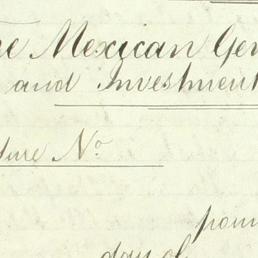 The Mexican Gen
and Investment
ture No
day of